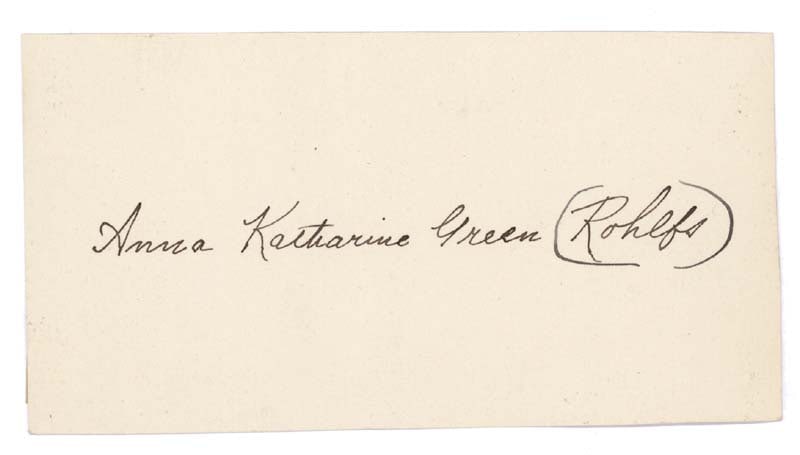 Anna Katharine Green (Rohlfs)